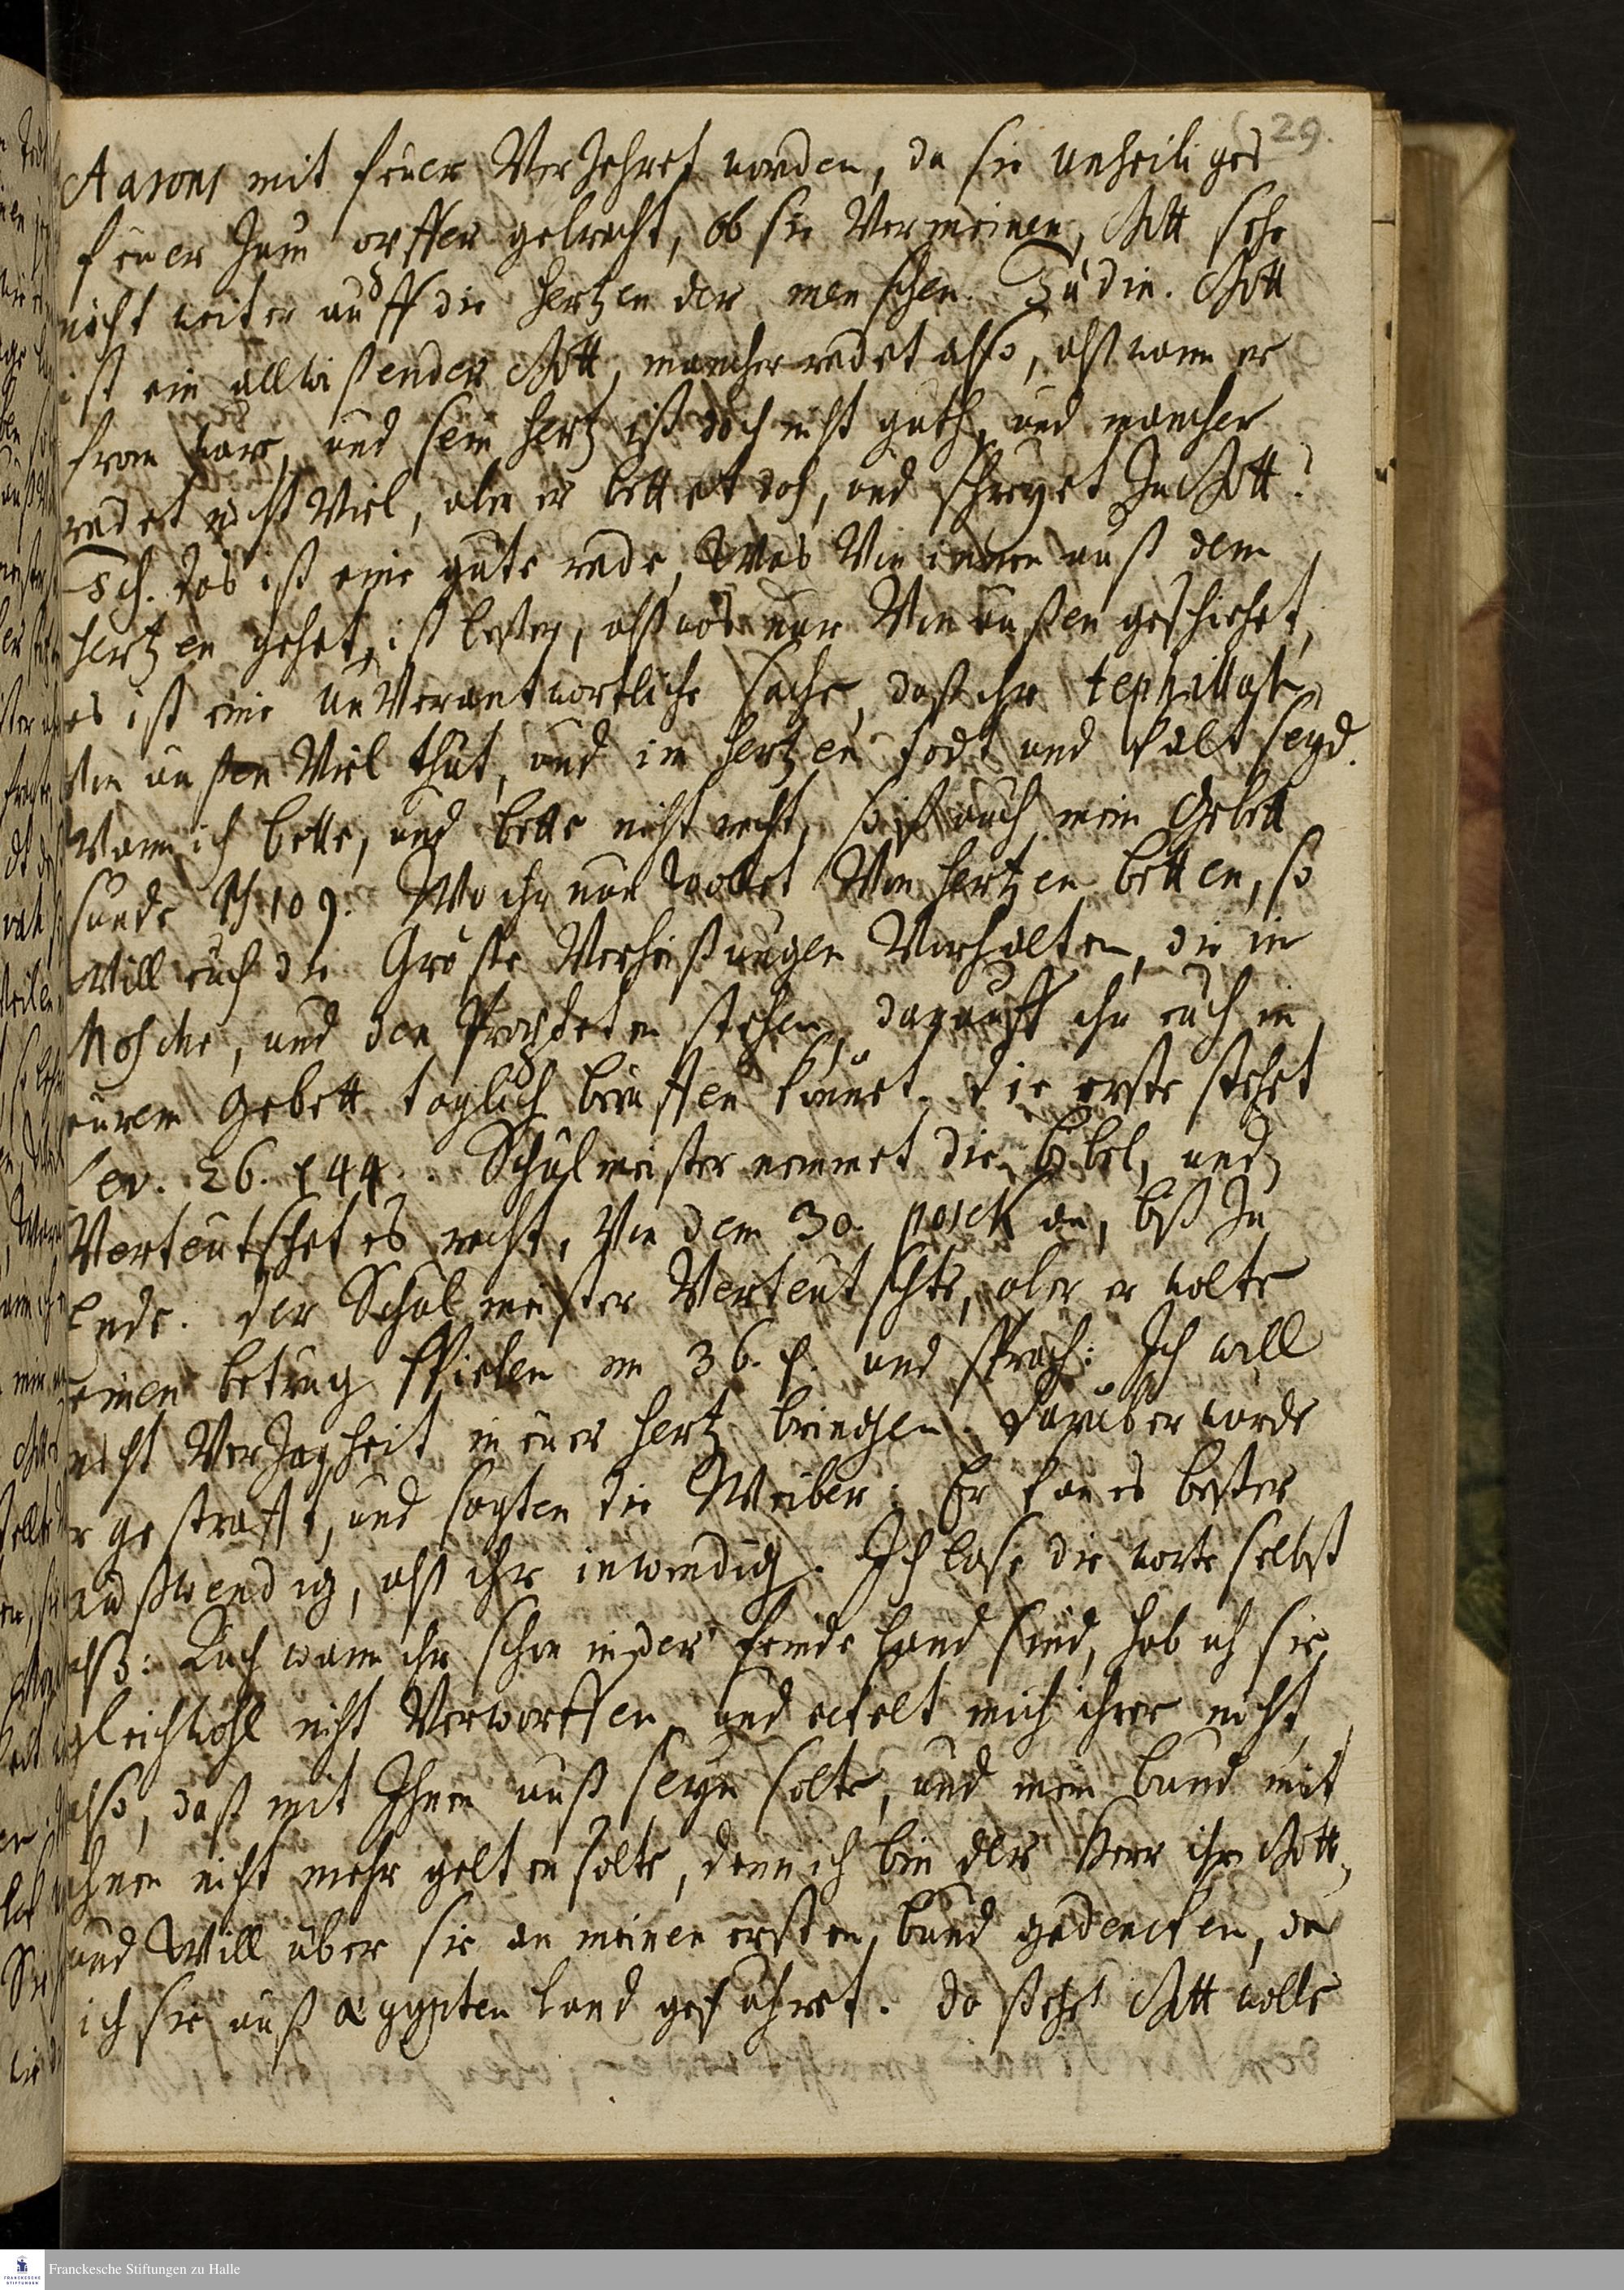 29.
Aarons mit feuer Verzehret worden, da sie unheiliges
feuer zum opffer gebracht, ob sie Vermeinen, Gott sehe
nicht weiter auff die hertzen der menschen. Jüdin. Gott
ist ein allwißender Gott, mancher redet also, alß wann er
from ware, und sein hertz ist doch nicht guth, und mancher
redet nicht Viel, aber er bettet doch, und schreyet zu Gott.
Ich. das ist eine gute rede, Was Von innen auß dem
hertzen gehet, ist beßer, alß was nur Von außen geschiehet,
es ist eine unVerantwortliche sache, daß ihr tephillath
Von außen Viel thut, und im hertzen todt und kalt seyd.
Wann ich bette, und bette nicht recht, so ist auch mein Gebett
sunde Ps. 109. Wo ihr nun wollet Von hertzen betten, so
Will euch die Gröste Verheißungen Vorhalten, die in
Mosche, und den Propheten stehen, darauff ihr euch in
eurem Gebett täglich beruffen könnet. die erste stehet
Lev. 26. 44. Schulmeister nemmet die bibel, und
Verteutschet es recht, Von dem 30. posek an, biß zu
Ende. der Schulmeister Verteutschte, aber er wolte
einen betrug spielen im 36. und sprach: Ich will
nicht Verzagheit in euer hertz bringen. darüber wurde
er gestrafft, und sagten die Weiber: Er kan es beßer
außwendig, alß ihr inwendig. Ich lase die worte selbst
alß: Auch wann ihr schon in der feinde land sind, hab ich sie
gleichwohl nicht Verworffen, und eckelt mich ihrer nicht,
also, daß mit Ihnen auß seyn solte, und mein bund mit
ihnen nicht mehr gelten solte, denn ich bin der Herr ihr Gott,
und Will über sie an meinen ersten bund gedencken, da
ich sie auß aegypten land geführet. da stehet Gott wolle
Franckesche Stiftungen zu Halle